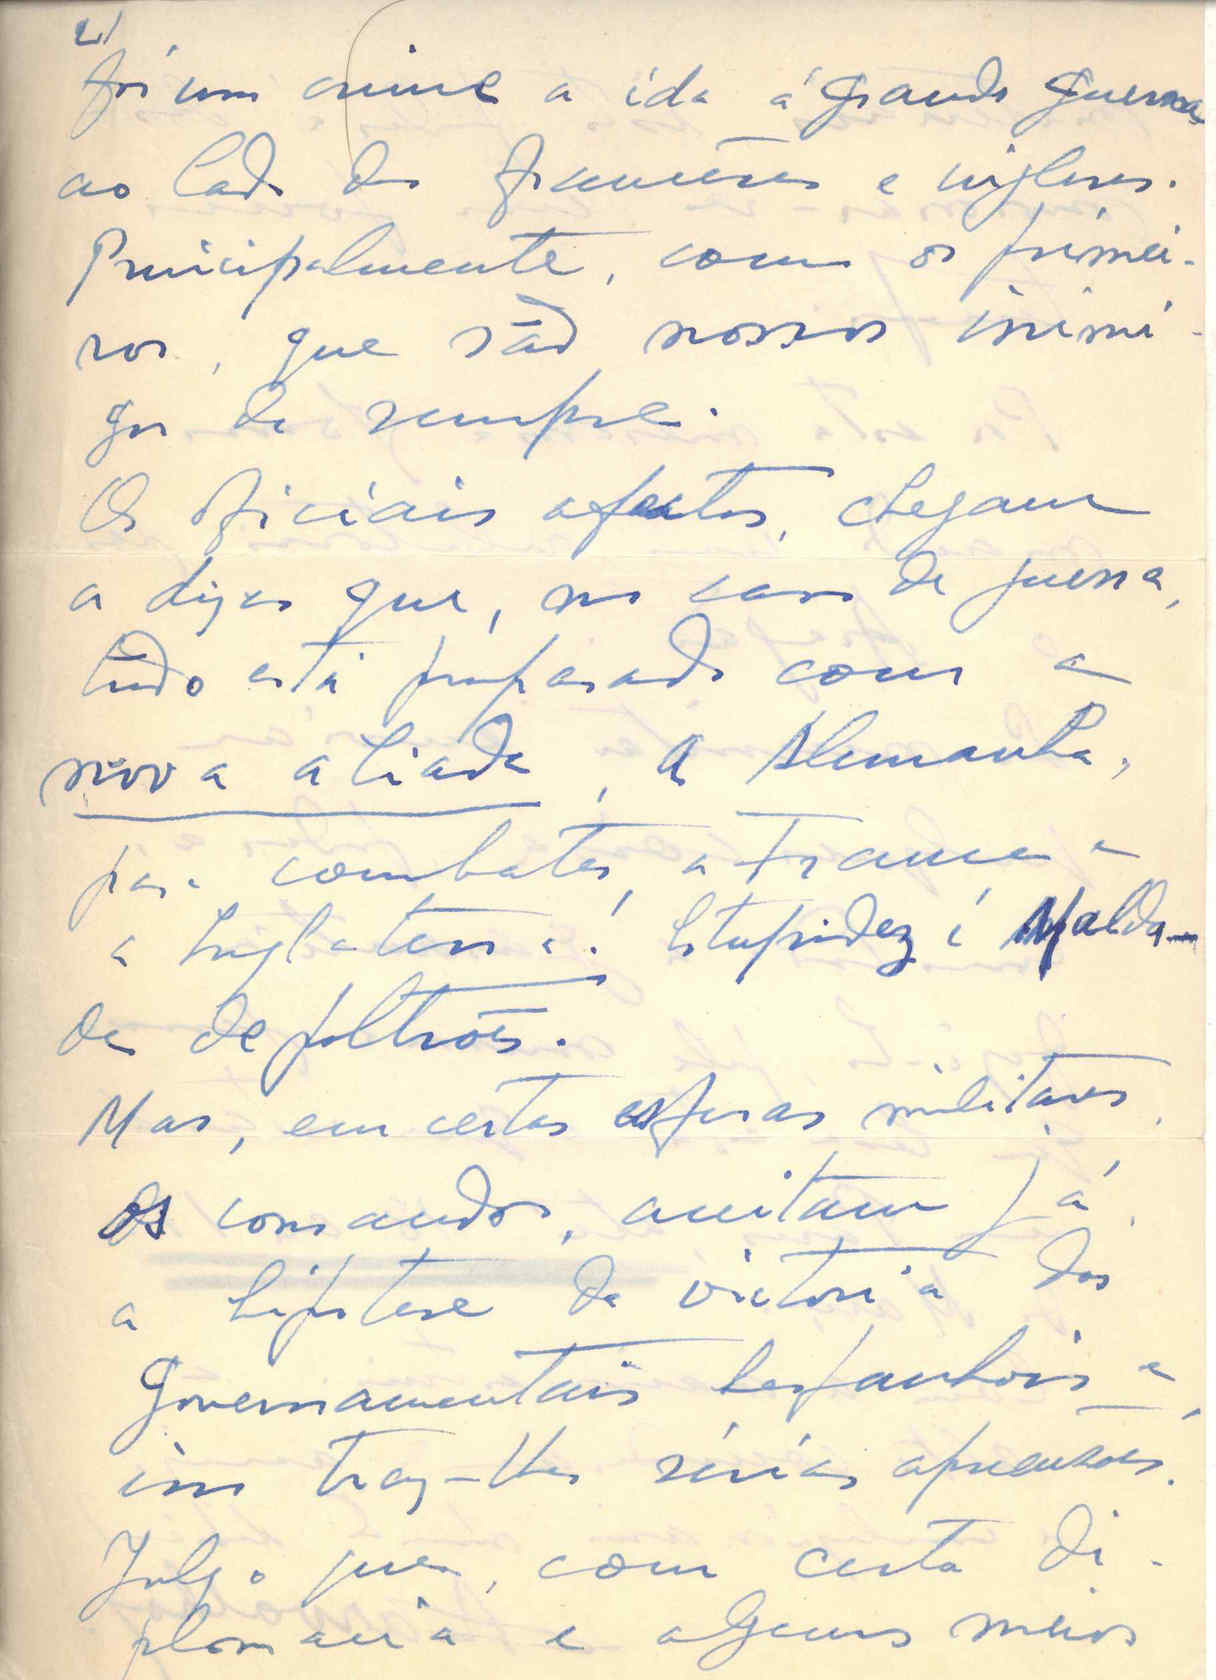 2/
foi um crime a ida á grande guerra,
ao lado de franceses e ingleses.
Principalmente, com os primei-
ros, que são nossos inimi-
gos de sempre.
Os oficiais afectos, chegam
a dizer que, no caso de guerra,
tudo está preparado com a
nova aliada, a Alemanha,
para combater, a França e
a Inglaterra! Estupidez é Malda-
de de poltrões.
Mas, em certas esferas militares,
os comandos, aceitam já,
a hipótese da victoria dos
Governamentais hespanhois e,
isso traz-lhes sérias apreensões.
Julgo que, com certa di-
plomacia e alguns meios